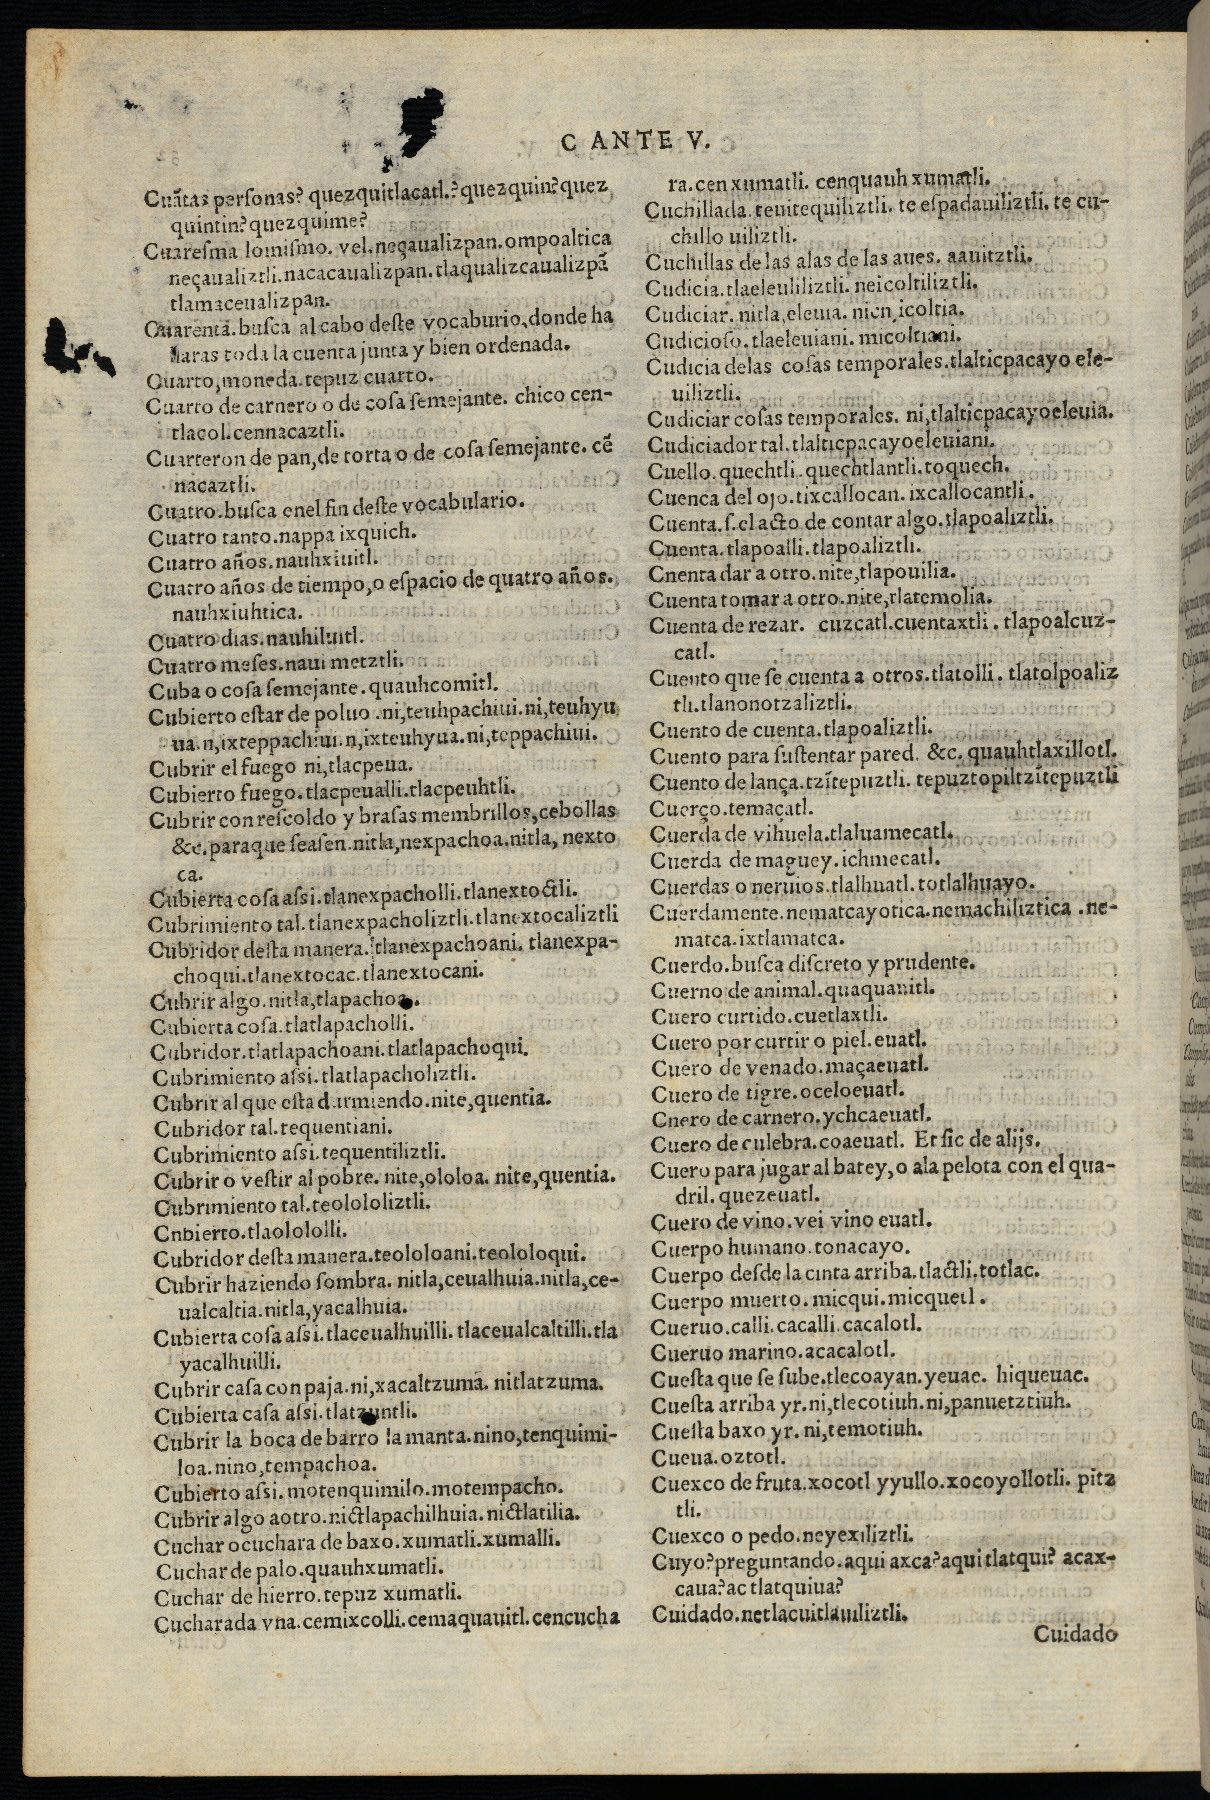 C ANTE V.
Cuãtas personas? quezquitlacatl.? quezquin? quez
quintin? quezquime?
Cuaresma lo mismo. vel. neçaualizpan. ompoaltica
neçaualiztli. nacacaualizpan. tlaqualizcaualizpã
tlamaceualizpan.
Cuarenta. busca al cabo deste vocaburio, donde ha
laras toda la cuenta junta y bien ordenada.
Quarto, moneda. tepuz cuarto.
Cuarto de carnero o de cosa semejante. chico cen-
tlacol. cennacaztli.
Cuarteron de pan, de torta o de cosa semejante. cẽ
nacaztli.
Cuatro. busca enel fin deste vocabulario.
Cuatro tanto. nappa ixquich.
Cuatro años. nauhxiuitl.
Cuatro años de tiempo, o espacio de quatro años.
nauhxiuhtica.
Cuatro dias. nauhiluitl.
Cuatro meses. naui metztli.
Cuba o cosa semejante. quauhcomitl.
Cubierto estar de poluo. ni, teuhpachiui. ni, teuhyu
ua. n, ixteppachiui. n, ixteuhyua. ni, teppachiui.
Cubrir el fuego ni, tlacpeua.
Cubierto fuego. tlacpeualli. tlacpeuhtli.
Cubrir con rescoldo y brasas membrillos, cebollas
&c. para que seasen. nitla, nexpachoa. nitla, nexto
ca.
Cubierta cosa assi. tlanexpacholli. tlanextoctli.
Cubrimiento tal. tlanexpacholiztli. tlanextocaliztli
Cubridor desta manera. tlanexpachoani. tlanexpa-
choqui. tlanextocac. tlanextocani.
Cubrir algo. nitla, tlapachoa.
Cubierta cosa. tlatlapacholli.
Cubridor. tlatlapachoani. tlatlapachoqui.
Cubrimiento assi. tlatlapacholiztli.
Cubrir al que esta durmiendo. nite, quentia.
Cubridor tal. tequentiani.
Cubrimiento assi. tequentiliztli.
Cubrir o vestir al pobre. nite, ololoa. nite, quentia.
Cubrimiento tal. teolololiztli.
Cnbierto. tlaolololli.
Cubridor desta manera. teololoani. teololoqui.
Cubrir haziendo sombra. nitla, ceualhuia. nitla, ce-
ualcaltia. nitla, yacalhuia.
Cubierta cosa assi. tlaceualhuilli. tlaceualcaltilli. tla
yacalhuilli.
Cubrir casa con paja. ni, xacaltzuma. nitlatzuma.
Cubierta casa assi. tlatzuntli.
Cubrir la boca de barro la manta. nino, tenquimi-
loa. nino, tempachoa.
Cubierto assi. motenquimilo. motempacho.
Cubrir algo aotro. nictlapachilhuia. nictlatilia.
Cuchar ocuchara de baxo. xumatli. xumalli.
Cuchar de palo. quauhxumatli.
Cuchar de hierro. tepuz xumatli.
Cucharada vna. cemixcolli. cemaquauitl. cencucha
ra. cen xumatli. cenquauh xumatli.
Cuchillada. teuitequiliztli. te espadauiliztli. te cu-
chillo uiliztli.
Cuchillas de las alas de las aues. aauitztli.
Cudicia. tlaeleuiliztli. neicoltiliztli.
Cudiciar. nitla, eleuia. nicn, icoltia.
Cudicioso. tlaeleuiani. micoltiani.
Cudicia delas cosas temporales. tlalticpacayo ele-
uiliztli.
Cudiciar cosas temporales. ni, tlalticpacayoeleuia.
Cudiciador tal. tlalticpacayoeleuiani.
Cuello. quechtli. quechtlantli. toquech.
Cuenca del ojo. tixcallocan. ixcallocantli.
Cuenta. s. el acto de contar algo. tlapoaliztli.
Cuenta. tlapoalli. tlapoaliztli.
Cnenta dar a otro. nite, tlapouilia.
Cuenta tomar a otro. nite, tlatemolia.
Cuenta de rezar. cuzcatl. cuentaxtli. tlapoalcuz-
catl.
Cuento que se cuenta a otros. tlatolli. tlatolpoaliz
tli. tlanonotzaliztli.
Cuento de cuenta. tlapoaliztli.
Cuento para sustentar pared. &c. quauhtlaxillotl.
Cuento de lança. tzĩtepuztli. tepuztopiltzĩtepuztli
Cuerço. temaçatl.
Cuerda de vihuela. tlaluamecatl.
Cuerda de maguey. ichmecatl.
Cuerdas o neruios. tlalhuatl. totlalhuayo.
Cuerdamente. nematcayotica. nemachiliztica. ne-
matca. ixtlamatca.
Cuerdo. busca discreto y prudente.
Cuerno de animal. quaquauitl.
Cuero curtido. cuetlaxtli.
Cuero por curtir o piel. euatl.
Cuero de venado. maçaeuatl.
Cuero de tigre. oceloeuatl.
Cnero de carnero. ychcaeuatl.
Cuero de culebra. coaeuatl. Et sic de alijs.
Cuero para jugar al batey, o ala pelota con el qua-
dril. quezeuatl.
Cuero de vino. vei vino euatl.
Cuerpo humano. tonacayo.
Cuerpo desde la cinta arriba. tlactli. totlac.
Cuerpo muerto. micqui. micquetl.
Cueruo. calli. cacalli. cacalotl.
Cueruo marino. acacalotl.
Cuesta que se sube. tlecoayan. yeuac. hiqueuac.
Cuesta arriba yr. ni, tlecotiuh. ni, panuetztiuh.
Cuesta baxo yr. ni, temotiuh.
Cueua. oztotl.
Cuexco de fruta. xocotl yyullo. xocoyollotli. pitz
tli.
Cuexco o pedo. neyexiliztli.
Cuyo? preguntando. aqui axca? aqui tlatqui? acax-
caua? ac tlatquiua?
Cuidado. netlacuitlauiliztli.
Cuidado